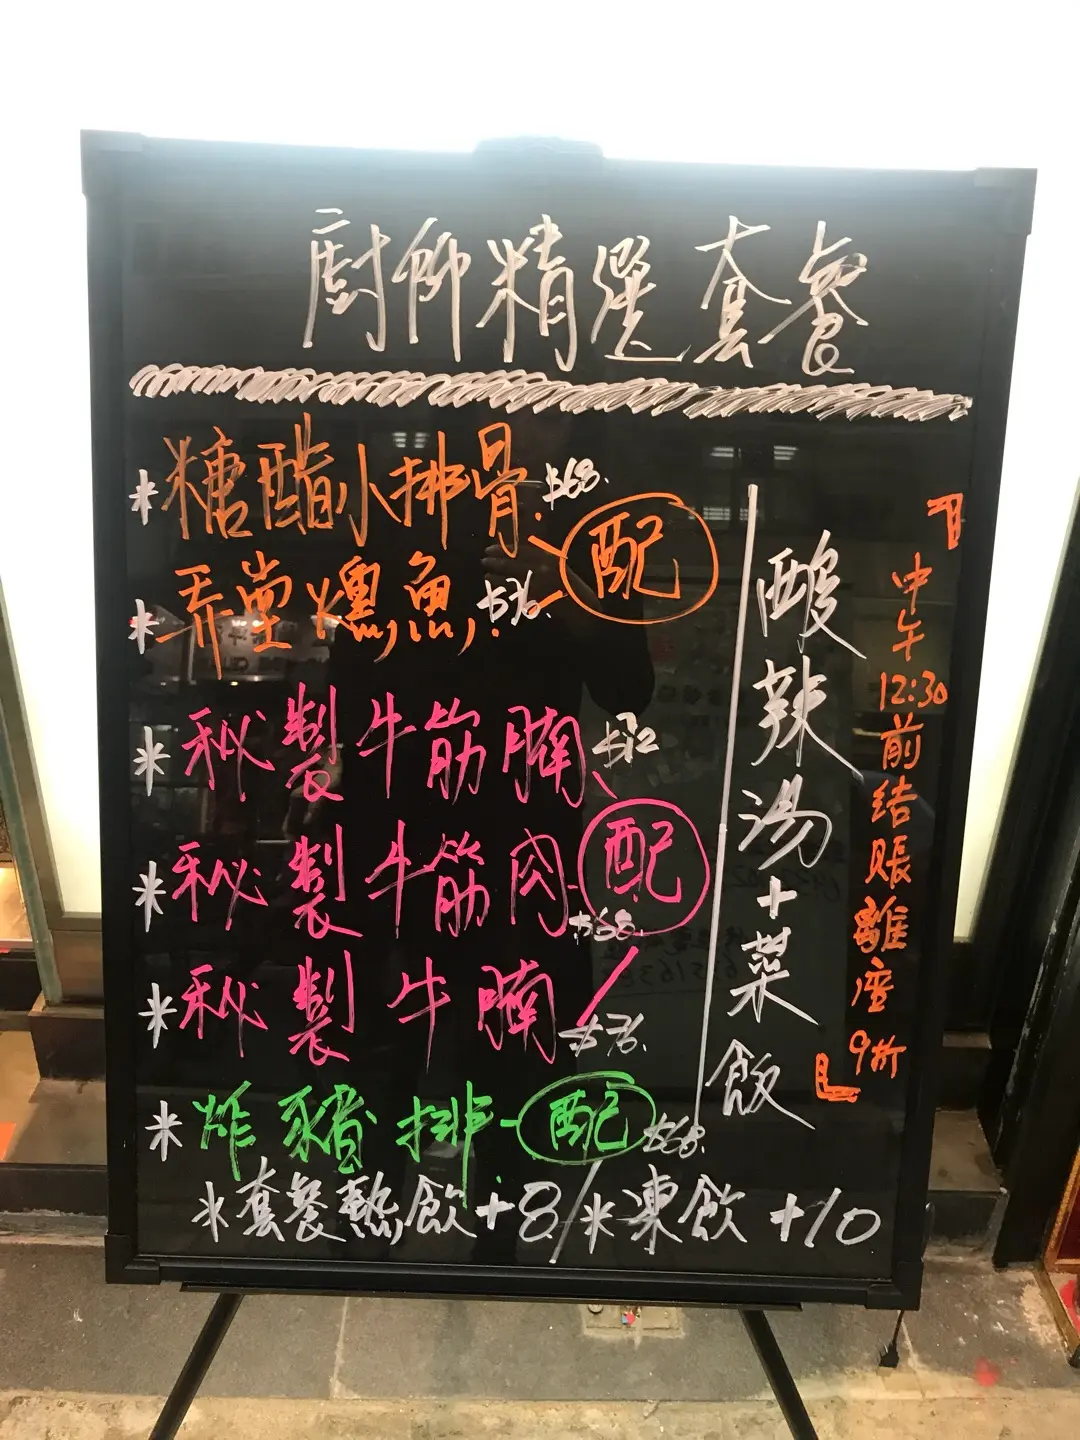 廚師精選套餐
*糖醋小排骨 $68.
*弄堂燻魚 $76.
配
*秘製牛筋腩 $72
*秘製牛筋肉 $68.
*秘製牛腩 $76.
配
*炸豬排-配 $68.
酸辣湯+菜飯
「中午12:30前结賬離座9折」
*套餐熱飲+8/*凍飲+10